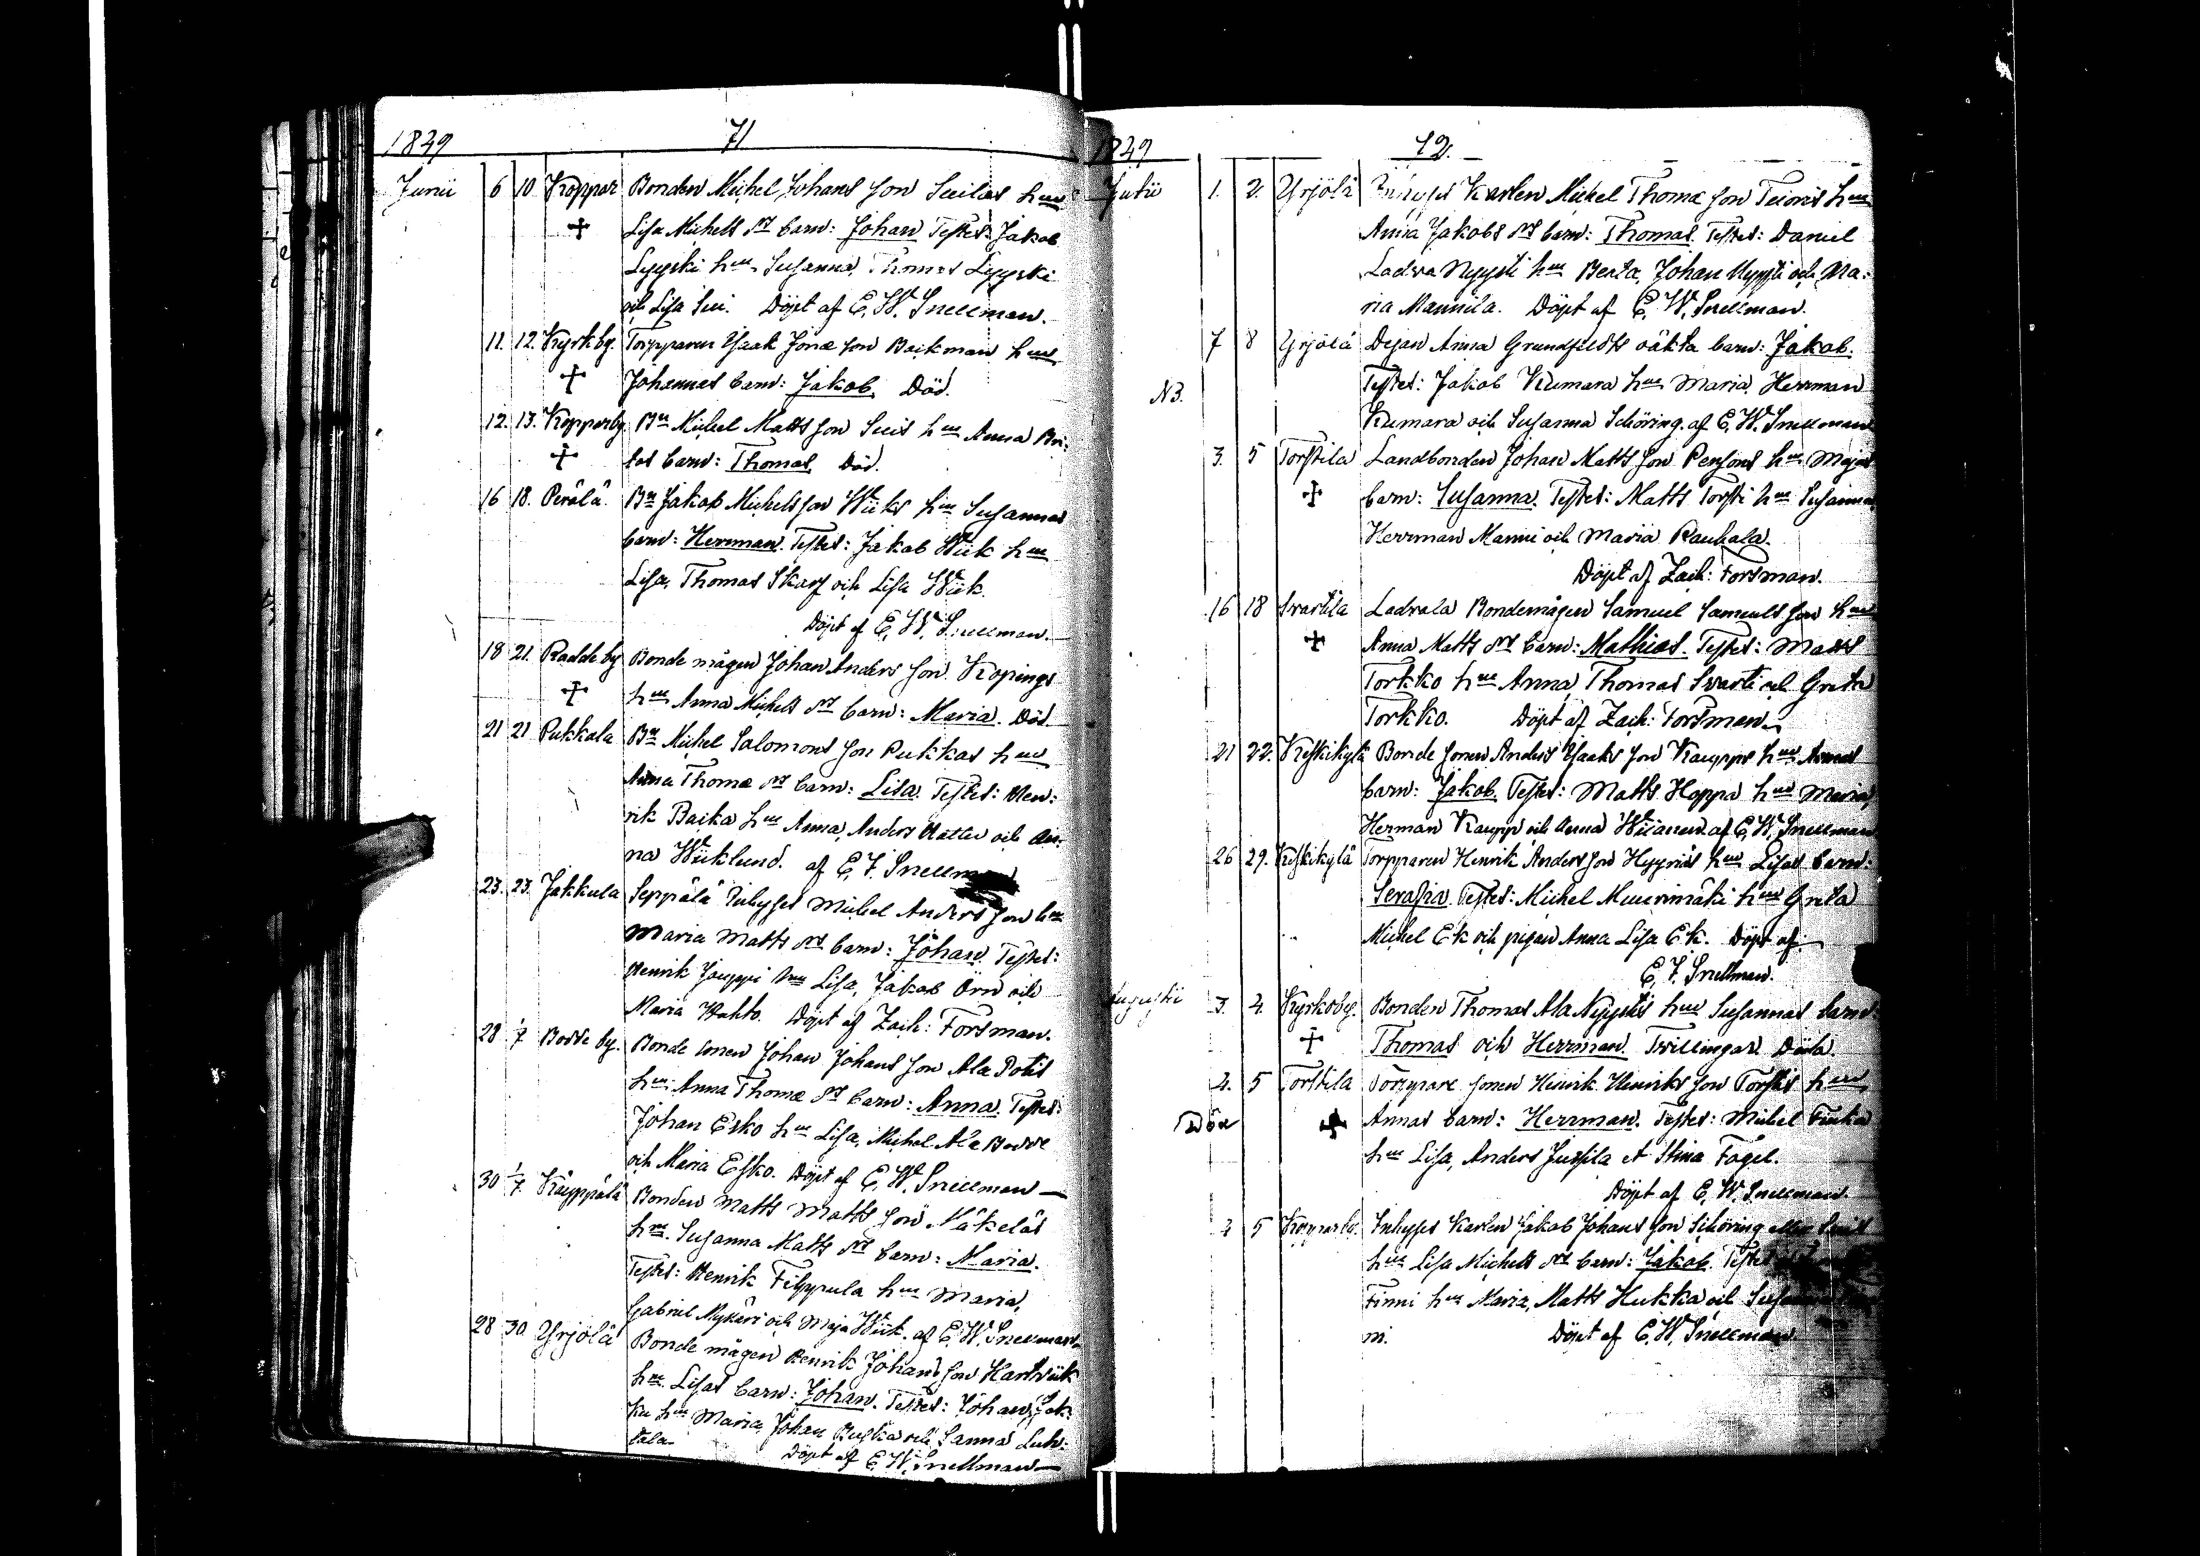 1849
71
Junii 6 10. Koppar Bonden Michel Johans son Seilas hus
Lisa Michels dr barn: Johan Testes: Jakob
Lyyski hus Susanna, Thomas Lyyski
och Lisa Sui. Döpt af E. W. Snellman.
11. 12. Kyrkby. Torpparen Isaak Jonæ son Backman hus
Johannas barn: Jakob. Död.
12. 13. Kopparby Bn Michel Matts son Seis hus Anna Bri:
tas barn: Thomas. Död.
16 18. Perälä. Bn Jakob Michels son Wiiks hus Susannas
barn: Herrman. Testes: Jakob Wiik hus
Lisa, Thomas Skarf och Lisa Wiik.
Döpt af E. W. Snellman.
18 21. Radde by Bonde mågen Johan Anders son Köpings
hus Anna Michels dr barn: Maria. Död
21 21 Pukkala Bn Michel Salomons son Pukkas hus
Anna Thomæ dr barn: Lisa. Testes: Hen:
rik Backa hus Anna, Anders och An:
na Wiiklund. af E. F. Snellman
23. 23. Jakkula Seppälä Inhyses Michel Anders son hus
Maria Matts dr barn: Johan. Testes:
Henrik Jauppi hus Lisa, Jakob Örn och
Maria Hahto. Döpt af Zach: Forsman.
28 1/7 Bosse by. Bonde sonen Johan Johans son Ala Potis
hus Anna Thomæ dr barn: Anna. Testes:
Johan Esko hus Lisa, Michel Ala Bosse
och Maria Esko. Döpt af E. W. Snellman
30 1/7. Kauppälä Bonden Matts Matts son Mäkeläs
hus Susanna Matts dr barn: Maria.
Testes: Henrik Filppula hus Maria,
Gabriel Nykäri och Maja Wiik. af E. W. Snellman
28 30 Yrjölä Bonde mågen Henrik Johans son Hartwiik
hus Lisas barn: Johan. Testes: Johan Jak:
ku hus Maria, Johan Ruska och Sanna Luh:
tala. Döpt af E. W. Snellman
1849
72.
Julii 1. 2. Yrjölä Inhyses Karlen Mickel Thomæ son Teioris hus
Anna Jakobs dr barn: Thomas. Testes: Daniel
Ladva Nyysti hus Beata, Johan Nyysti och Ma:
ria Mannila. Döpt af E. W. Snellman.
7 8 Yrjölä Dejan Anna Grundfeldts oäkta barn: Jakob.
N3. Testes: Jakob Kumara hus Maria, Herrman
Kumara och Susanna Schöring. af E. W. Snellman
3. 5 Torstila Landbonden Johan Matts son Pensons hus Majas
barn: Susanna. Testes: Matts Torsti hus Susanna
Herrman Manni och Maria Rauhala.
Döpt af Zach: Forsman.
16 18 Svartila Ladvala Bondemågen Samuel Samuels son hus
Anna Matts dr barn: Mathias. Testes: Matts
Torkko hus Anna, Thomas Svarti och Greta
Torkko. Döpt af Zach: Forsman.
21 22. Keskikylä Bonde sonen Anders Isaaks son Kaupps hus Annas
barn: Jakob. Testes: Matts Hoppa hus Maria,
Herman Kauppi och Anna Wiianen. af E. W. Snellman
26 29. Keskikylä Torpparen Henrik Anders son Hyyriäs hus Lisas barn:
Serafia. Testes: Michel Muurimäki hus Greta
Michel Ek och pigan Anna Lisa Ek. Döpt af
E. F. Snellman.
Augusti 3. 4. Kyrkoby. Bonden Thomas Ala Nyystis hus Susannas barn:
Thomas och Herrman. Tvillingar. Döda.
4. 5 Torstila Torppare sonen Henrik Henriks son Torstis hus
Död Annas barn: Herrman. Testes: Michel Finka
hus Lisa, Anders Jussila et Stina Fogel.
Döpt af E. W. Snellman.
4 5 Kopparby. Inhyses Karlen Jakob Johans son Schöring
hus Lisa Michels dr barn: Jakob. Testes:
Finni hus Maria, Matts Hukka och Susanna
ni. Döpt af E. W. Snellman.